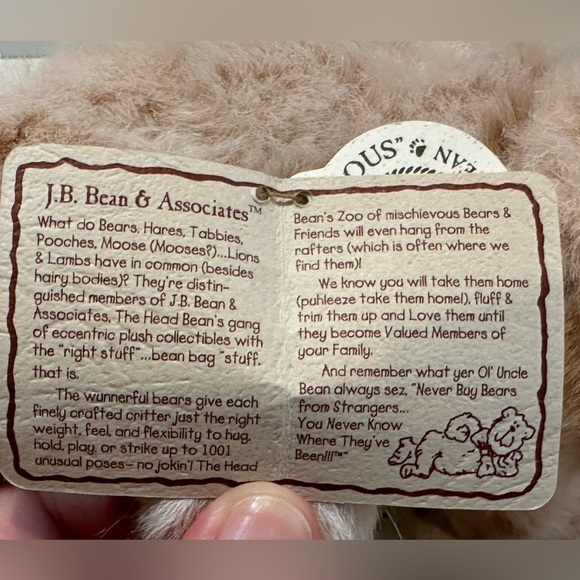 OUS"
EAN
J.B. Bean & Associates™
What do Bears, Hares, Tabbies,
Pooches, Moose (Mooses?)...Lions
& Lambs have in common (besides
hairy bodies)? They're distin-
guished members of J.B. Bean &
Associates, The Head Bean's gang
of eccentric plush collectibles with
the "right stuff"...bean bag "stuff,
that is.
The wunnerful bears give each
finely crafted critter just the right
weight, feel, and flexibility to hug,
hold, play, or strike up to 1001
unusual poses- no jokin'! The Head
Bean's Zoo of mischievous Bears &
Friends will even hang from the
rafters (which is often where we
find them)!
We know you will take them home
(puhleeze take them home!), fluff &
trim them up and Love them until
they become Valued Members of
your Family.
And remember what yer Ol' Uncle
Bean always sez, "Never Buy Bears
from Strangers...
You Never Know
Where They've
Been!!!™"